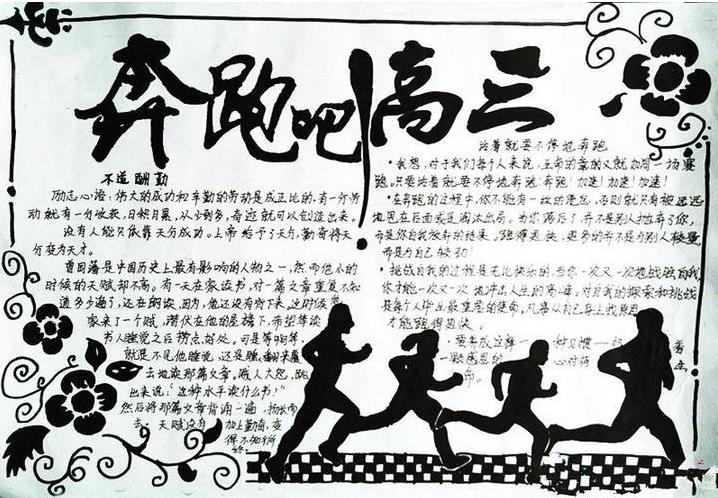 奔跑吧!高三
不道酬勤
励志心语：伟大的成功和辛勤的劳动是成正比的，有一分劳
动就有一分收获，日积月累，从少到多，奇迹就可以创造出来。
没有人能只依靠天分成功。上帝给予了天分，勤奋将天
分变为天才。
曾国藩是中国历史上最有影响的人物之一，然而他小的
时候的天赋却不高。有一天在家读书，对一篇文章重复不知
道多少遍了，还在朗读，因为，他还没有背下来。这时候
家来了一个贼，潜伏在他的屋檐下，希望等读
书人睡觉之后捞点好处。可是等啊等，
就是不见他睡觉，还是翻来覆
去地读那篇文章。贼人大怒，跳
出来说，“这种水平读什么书？”
然后将那篇文章背诵一遍，扬长而
去。天赋没有 加上勤奋，变
得不知所
终。
活着就要不停地奔跑
·我想，对于我们每个人来说，生命的意义就如同一场赛
跑。只要活着就要不停地奔跑！奔跑！加速！加速！加速！
·在奔跑的过程中，你不能有一丝的懈怠，否则就只有被远远
地甩在后面或是淘汰出局。当你落后了并不是别人抛弃了你，
而是你自我放弃的结果。跑得更快，更多的并不是与别人较量
而是为自己较劲！
·挑战自我的过程是无比快乐的，当你一次又一次挑战独自我
你才能一次又一次地冲击人生的高峰。对自我的探索和挑战
是每个人毕生最重要的使命，凡事从自己身上找原因
才能跑得更快。
·要养成这样一种习惯——
一颗感恩的 心对待
命。